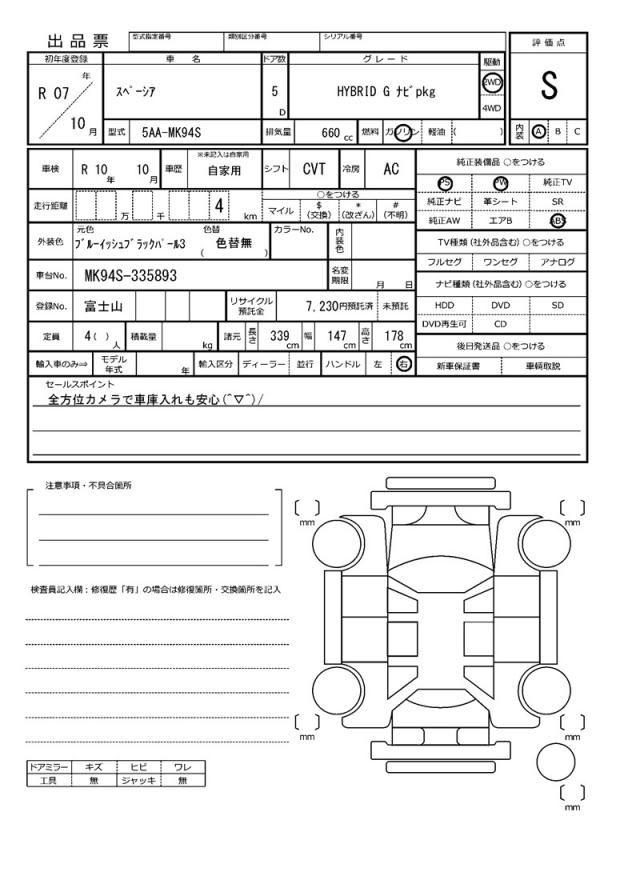 出品票 型式指定番号 類別区分番号 シリアル番号
評価点
初年度登録 車名 ドア数 グレード 駆動
R 07 年 スペーシア 5 D HYBRID G ナビpkg 2WD S
4WD
10 月 型式 5AA-MK94S 排気量 660 cc 燃料 ガソリン 軽油 ( ) 内装 A B C
車検 R 10 年 10 月 車歴 ※未記入は自家用 自家用 シフト CVT 冷房 AC
純正装備品 ○をつける
PS PW 純正TV
走行距離 万 千 4 km ○をつける
マイル $ (交換) * (改ざん) # (不明)
純正ナビ 革シート SR
純正AW エアB ABS
外装色 元色 ブルーイッシュブラックパール3 色替 ( 色替無 ) カラーNo. 内装色
TV種類 (社外品含む) ○をつける
フルセグ ワンセグ アナログ
車台No. MK94S-335893 名変期限 月 日
ナビ種類 (社外品含む) ○をつける
登録No. 富士山 リサイクル預託金 7,230円預託済 未預託
HDD DVD SD
DVD再生可 CD
定員 4 ( ) 人 積載量 kg 諸元 長さ 339 cm 幅 147 cm 高さ 178 cm
後日発送品 ○をつける
輸入車のみ⇒ モデル年式 年 輸入区分 ディーラー 並行 ハンドル 左 右
新車保証書 車輌取説
セールスポイント
全方位カメラで車庫入れも安心(^▽^)/
注意事項・不具合箇所
mm mm
検査員記入欄：修復歴「有」の場合は修復箇所・交換箇所を記入
mm mm
ドアミラー キズ ヒビ ワレ
工具 無 ジャッキ 無
mm